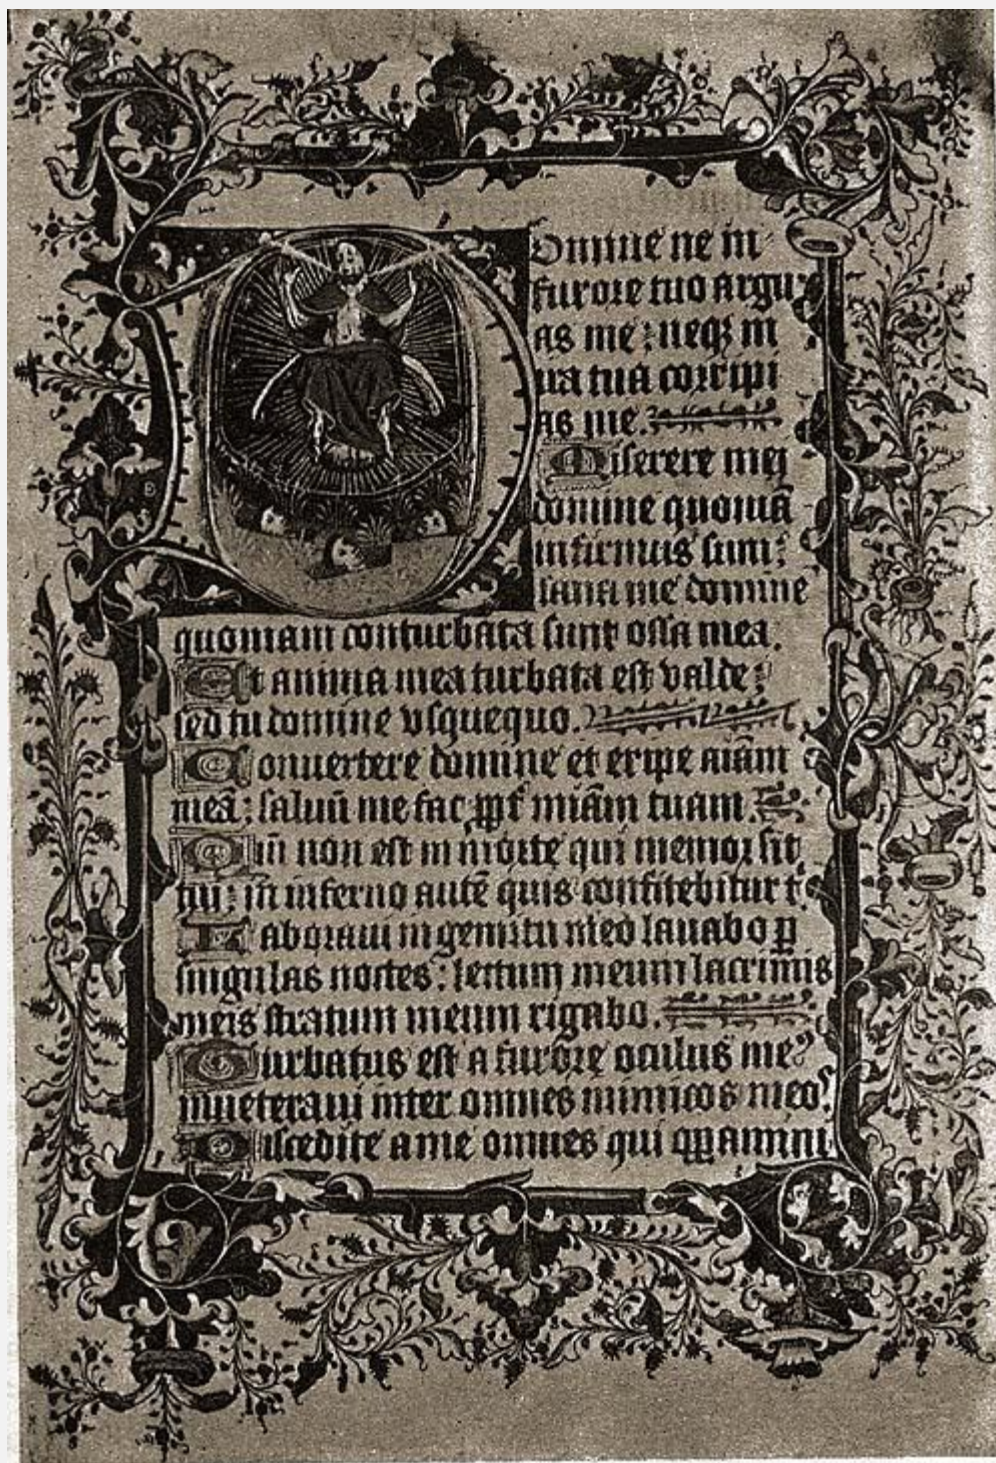 Domine ne in
furore tuo argu
as me: neq; in
ira tua corripi
as me.
Miserere mei
domine quoniā
infirmus sum:
sana me domine
quoniam conturbata sunt ossa mea.
Et anima mea turbata est valde:
sed tu domine vsquequo.
Conuertere domine et eripe aiām
meā: saluū me fac ꝓpt̄ miām tuam.
Qm̄ non est in morte qui memor sit
tui: in inferno autē quis confitebitur t̄.
Laboraui in gemitu meo lauabo ꝑ
singulas noctes: lectum meum lacrimis
meis stratum meum rigabo.
Turbatus est a furore oculus meꝰ
inueteraui inter omnes inimicos meos.
Discedite a me omnes qui